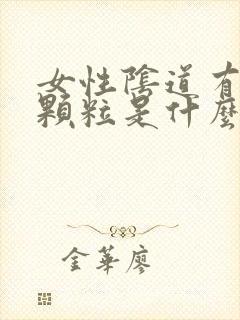 女性陰道有
顆粒是什麼
金華廖